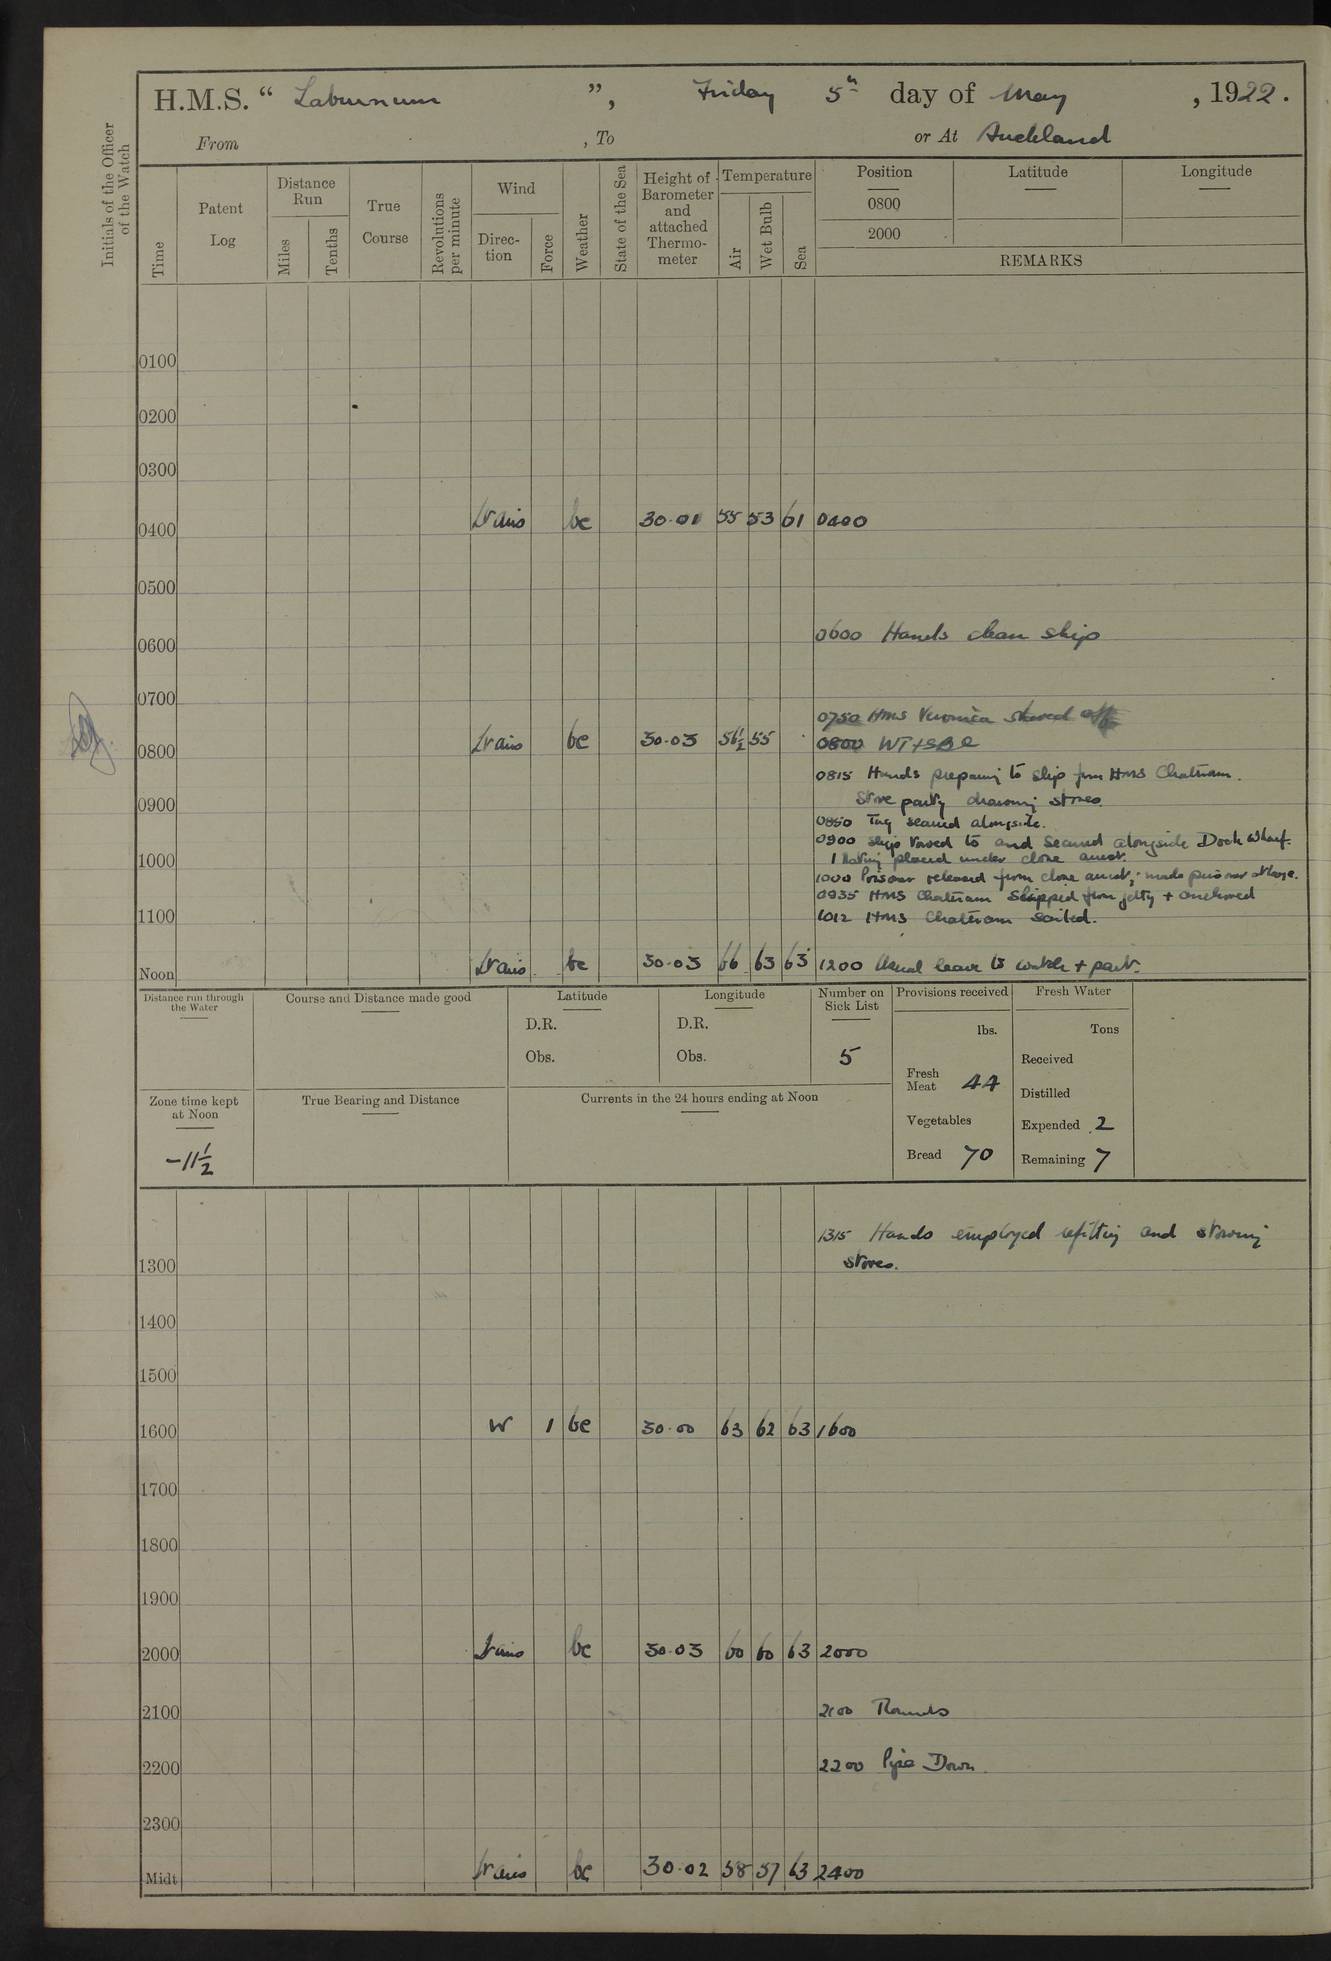 H.M.S. “ Laburnum ”, Friday 5th day of May , 1922.
From , To or At Auckland
Initials of the Officer of the Watch
Time
Patent Log
Distance Run
Miles
Tenths
True Course
Revolutions per minute
Wind
Direc-tion
Force
Weather
State of the Sea
Height of Barometer and attached Thermo-meter
Temperature
Air
Wet Bulb
Sea
Position
0800
2000
Latitude
Longitude
REMARKS
0100
0200
0300
0400 Lt airs bc 30.01 55 53 61 0400
0500
0600 0600 Hands clean ship
0700
0750 HMS Veronica shoved off
0800 Lt airs bc 30.03 56½ 55 0800
0815 Hands preparing to slip from HMS Chatham.
Store party drawing stores.
0900
0850 Tug secured alongside.
0900 Ship towed to and secured alongside Dock Wharf.
1 Rating placed under close arrest.
1000
1000 Prisoner released from close arrest, made prisoner at large.
0935 HMS Chatham slipped from jetty + anchored
1100
1012 HMS Chatham sailed.
Noon Lt airs bc 30.03 66 63 63 1200 Usual leave to watch + part.
Distance run through the Water
Course and Distance made good
Latitude
D.R.
Obs.
Longitude
D.R.
Obs.
Number on Sick List
5
Provisions received
lbs.
Fresh Meat 44
Vegetables
Bread 70
Fresh Water
Tons
Received
Distilled
Expended 2
Remaining 7
Zone time kept at Noon
-11½
True Bearing and Distance
Currents in the 24 hours ending at Noon
1315 Hands employed refitting and stowing
stores.
1300
1400
1500
1600 W 1 bc 30.00 63 62 63 1600
1700
1800
1900
2000 Lt airs bc 30.03 60 60 63 2000
2100 2100 Rounds
2200 2200 Pipe Down.
2300
Midt Lt airs bc 30.02 58 57 63 2400